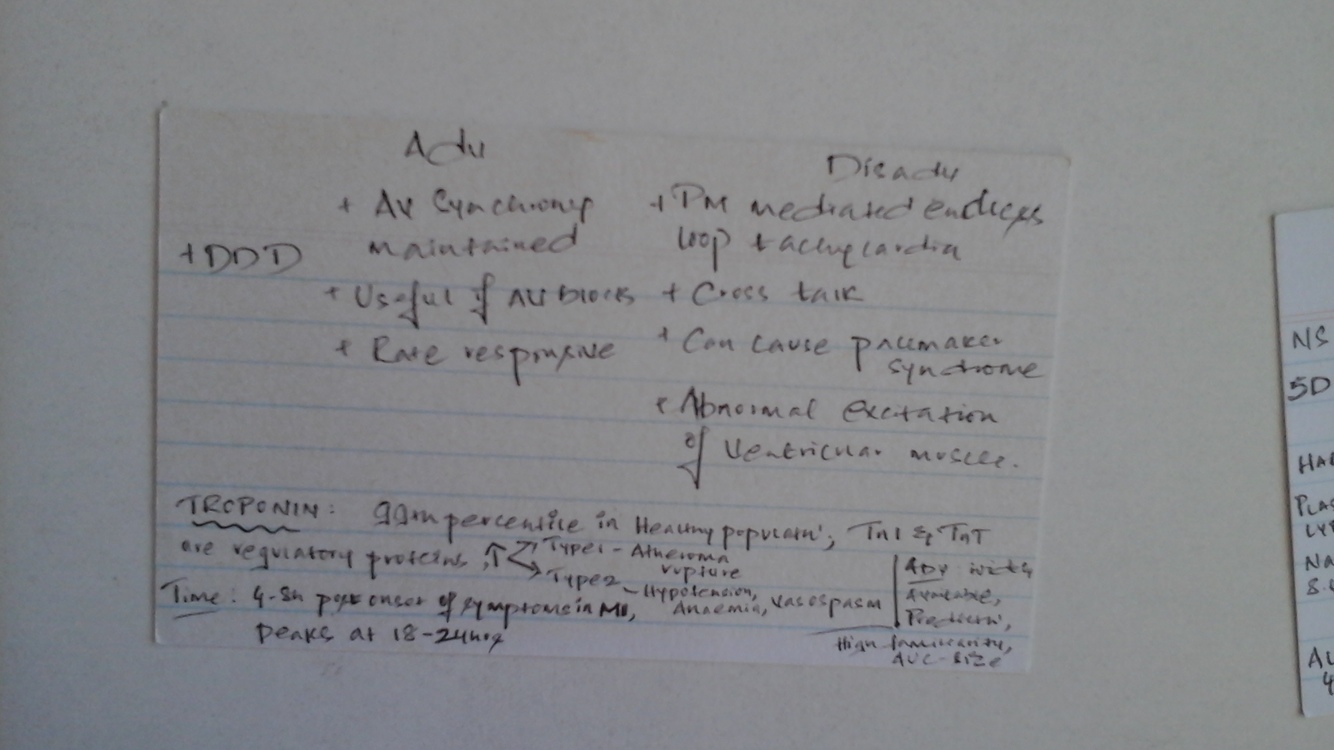 Adv
Disadv
+ DDD
+ AV Synchrony
maintained
+ Useful if AV blocks
+ Rate responsive
+ PM mediated endless
loop tachycardia
+ Cross talk
+ Can cause pacemaker
syndrome
+ Abnormal excitation
of ventricular muscle.
TROPONIN: 99th percentile in Healthy populatn; TnI & TnT
are regulatory proteins, ↑ Type 1 - Atheroma
rupture
Type 2 - Hypotension,
Anaemia, vasospasm
Time: 4-8h post onset of symptoms in MI,
peaks at 18-24hrs
Adv widely
Available,
Predictn,
High familiarity,
AUC-Size
NS
5D
HA
PLA
LY
Na
8.
AL
4